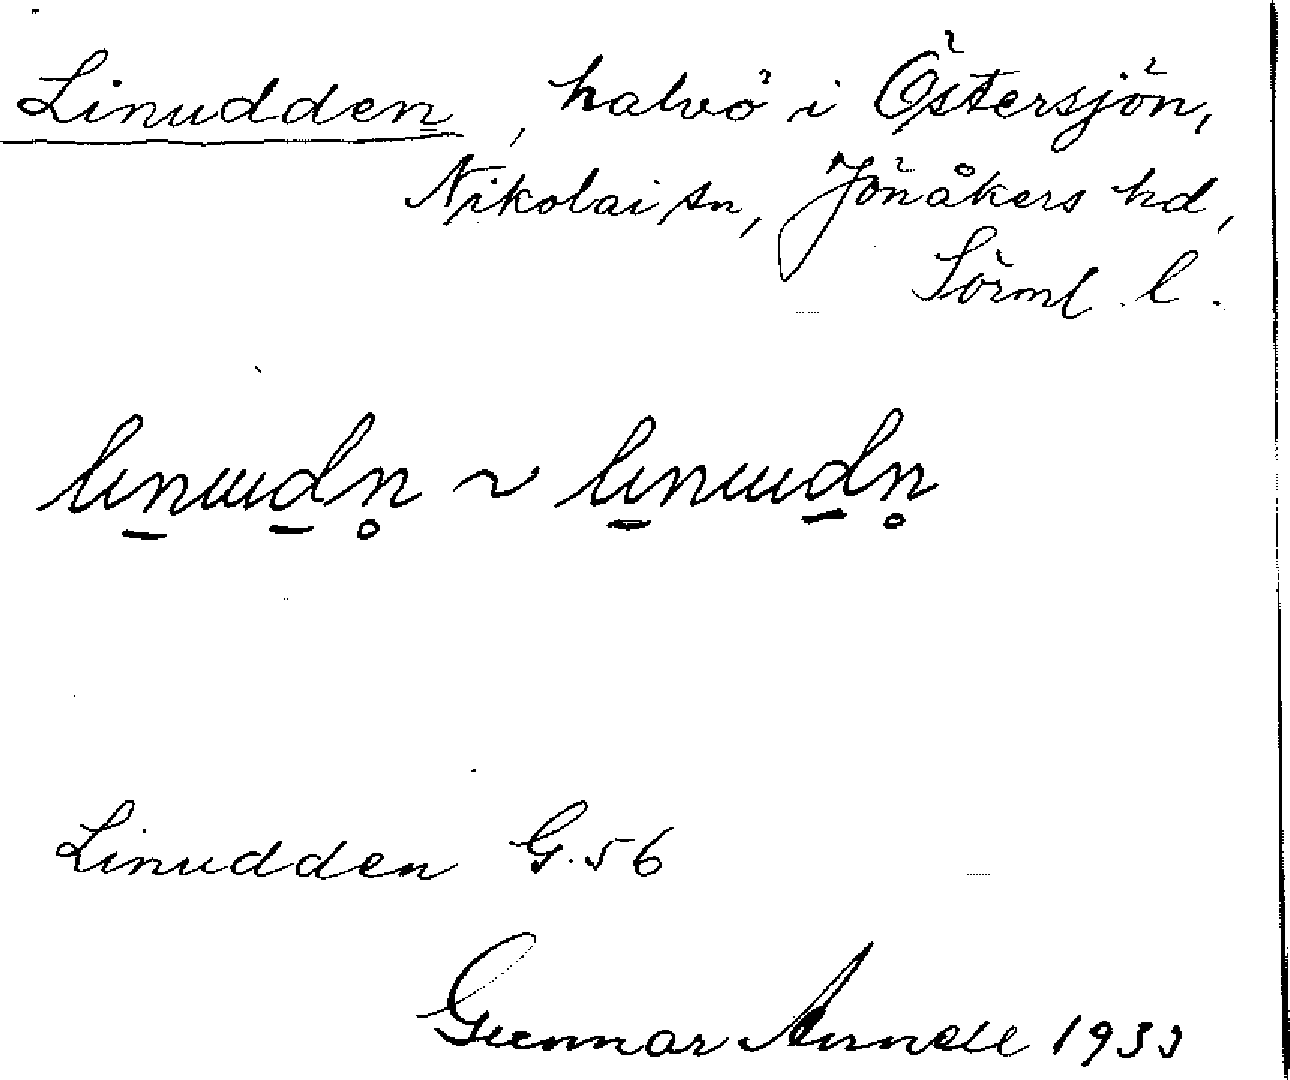 Linudden, halvö i Östersjön,
Nikolai sn, Jönåkers hd,
Sörml. l.
Linudden G. 56
Gunnar 1933